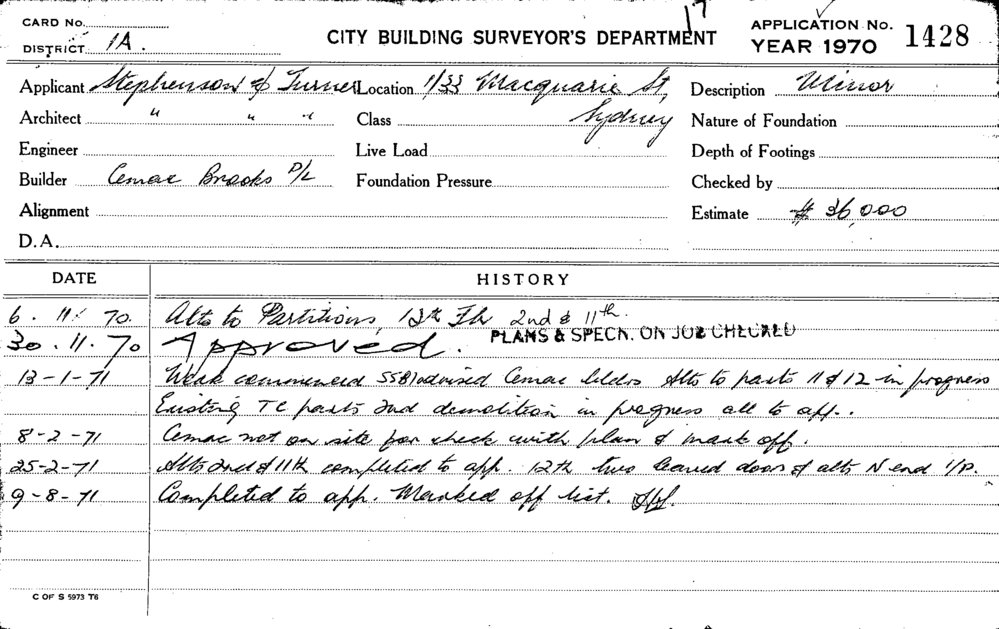 CARD No.
17
APPLICATION No. 1428
DISTRICT 1A.
CITY BUILDING SURVEYOR'S DEPARTMENT
YEAR 1970
Applicant Stephenson & Turner Location 1/33 Macquarie St, Description Minor
Architect " " " Class Sydney Nature of Foundation
Engineer Live Load Depth of Footings
Builder Cemac Brooks P/L Foundation Pressure Checked by
Alignment Estimate $ 36,000
D.A.
DATE HISTORY
6. 11. 70. Alts to Partitions, 12th Flr 2nd & 11th.
30. 11. 70 Approved. PLANS & SPECN. ON JOB CHECKED
13-1-71 Work commenced SSB) advised Cemac bldrs Alts to parts 11 & 12 in progress
Existing TC parts 2nd demolition in progress all to app..
8-2-71 Cemac not on site for check with plan & mark off.
25-2-71 Alts 2nd & 11th completed to app. 12th two leaved doors & alts N end I/P.
9-8-71 Completed to app. Marked off list.
C OF S 5973 T6